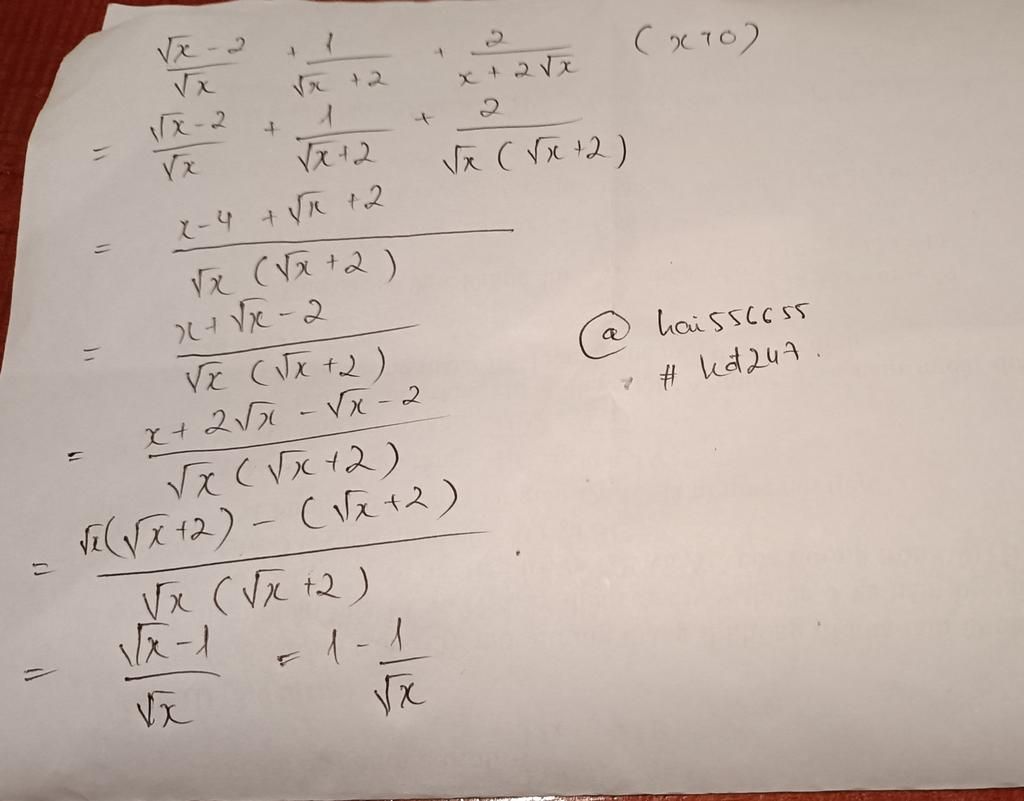 (√x - 2)/√x + 1/(√x + 2) + 2/(x + 2√x) (x > 0)
= (√x - 2)/√x + 1/(√x + 2) + 2/(√x (√x + 2))
= (x - 4 + √x + 2)/(√x (√x + 2))
= (x + √x - 2)/(√x (√x + 2))
@ hai556655
# kd247.
= (x + 2√x - √x - 2)/(√x (√x + 2))
= (√x(√x + 2) - (√x + 2))/(√x (√x + 2))
= (√x - 1)/√x = 1 - 1/√x